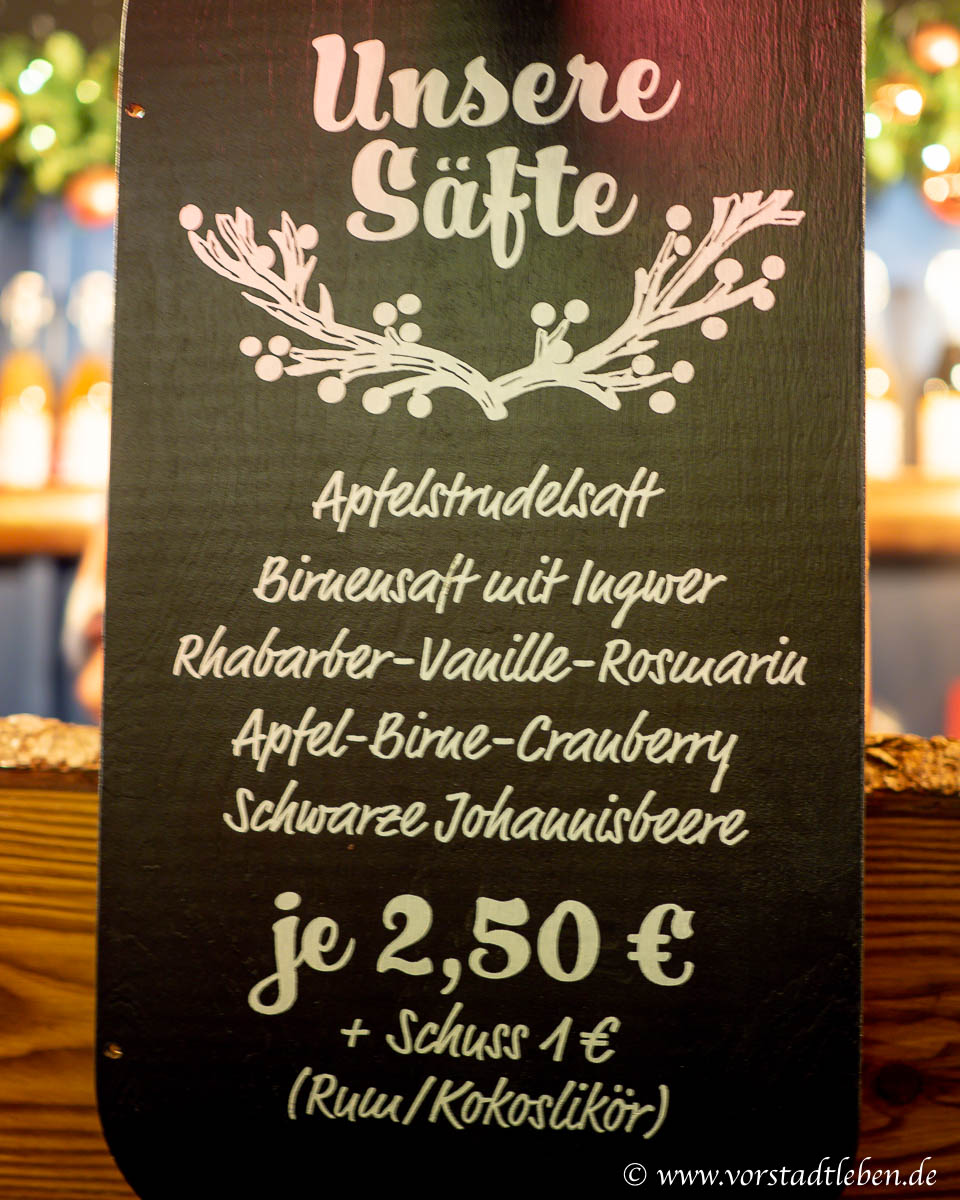 Unsere
Säfte
Apfelstrudelsaft
Birnensaft mit Ingwer
Rhabarber-Vanille-Rosmarin
Apfel-Birne-Cranberry
Schwarze Johannisbeere
je 2,50 €
+ Schuss 1 €
(Rum/Kokoslikör)
© www.vorstadtleben.de